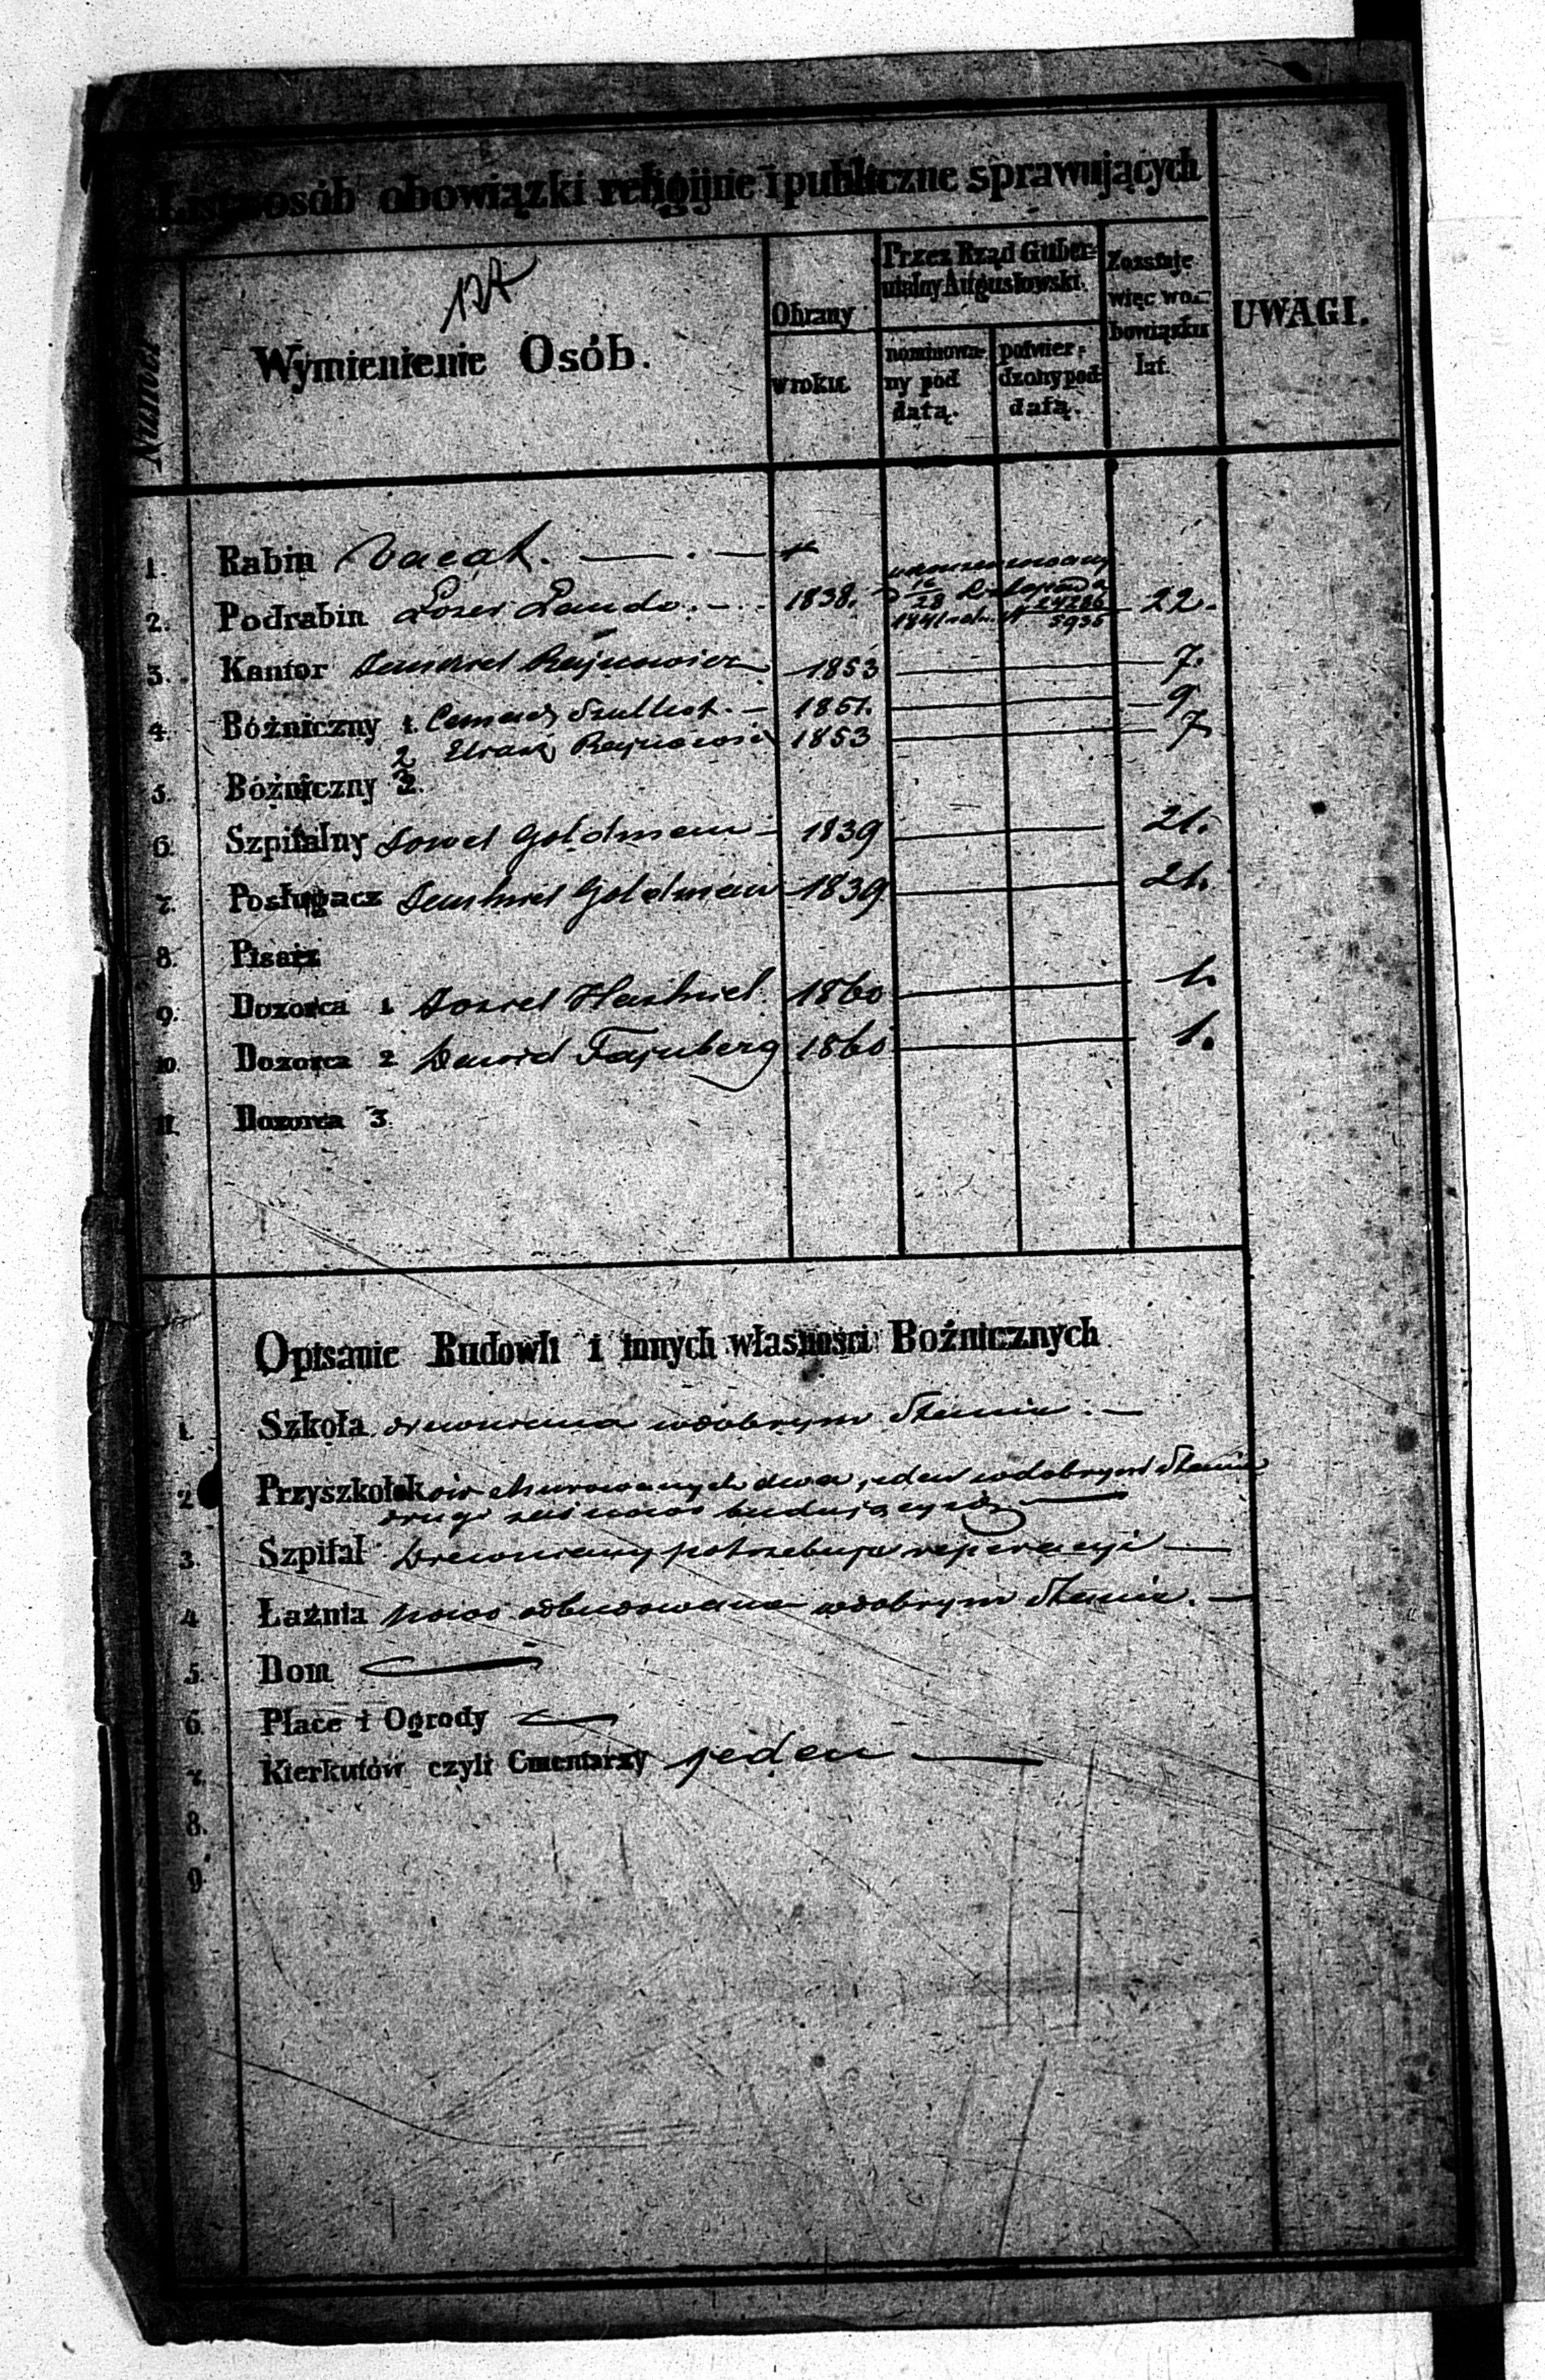 Lista osób obowiązki religijne i publiczne sprawujących
Numer
Wymienienie Osób.
Obrany
w roku.
Przez Rząd Guber-
nialny Augustowski.
nominowa-
ny pod
datą.
potwier-
dzony pod
datą.
Zostaje
więc w o-
bowiązku
lat.
UWAGI.
1. Rabin Vacat.
2. Podrabin Lozer Lando. 1838. 28 1841 24286 5935 22.
3. Kantor Rajnowicz 1853 7.
4. Bóżniczny 1. 1851. 9
2 Rajnowicz 1853 7
5. Bóżniczny 3.
6. Szpitalny Goldman 1839 21.
7. Posługacz Goldman 1839 21.
8. Pisarz
9. Dozorca 1 1860 1.
10. Dozorca 2 Dawid Fajnberg 1860 1.
11. Dozorca 3.
Opisanie Budowli i innych własności Bożnicznych
1. Szkoła drewniana w dobrym Stanie. —
2 Przyszkołków Murowanych dwa, jeden w dobrym Stanie
drugi zaś nowo budujący się
3. Szpital Drewniany potrzebuje reperacyi —
4 Łaźnia nowo odbudowana w dobrym Stanie. —
5. Dom —
6 Place i Ogrody —
7. Kierkutów czyli Cmentarzy jeden —
8.
9.